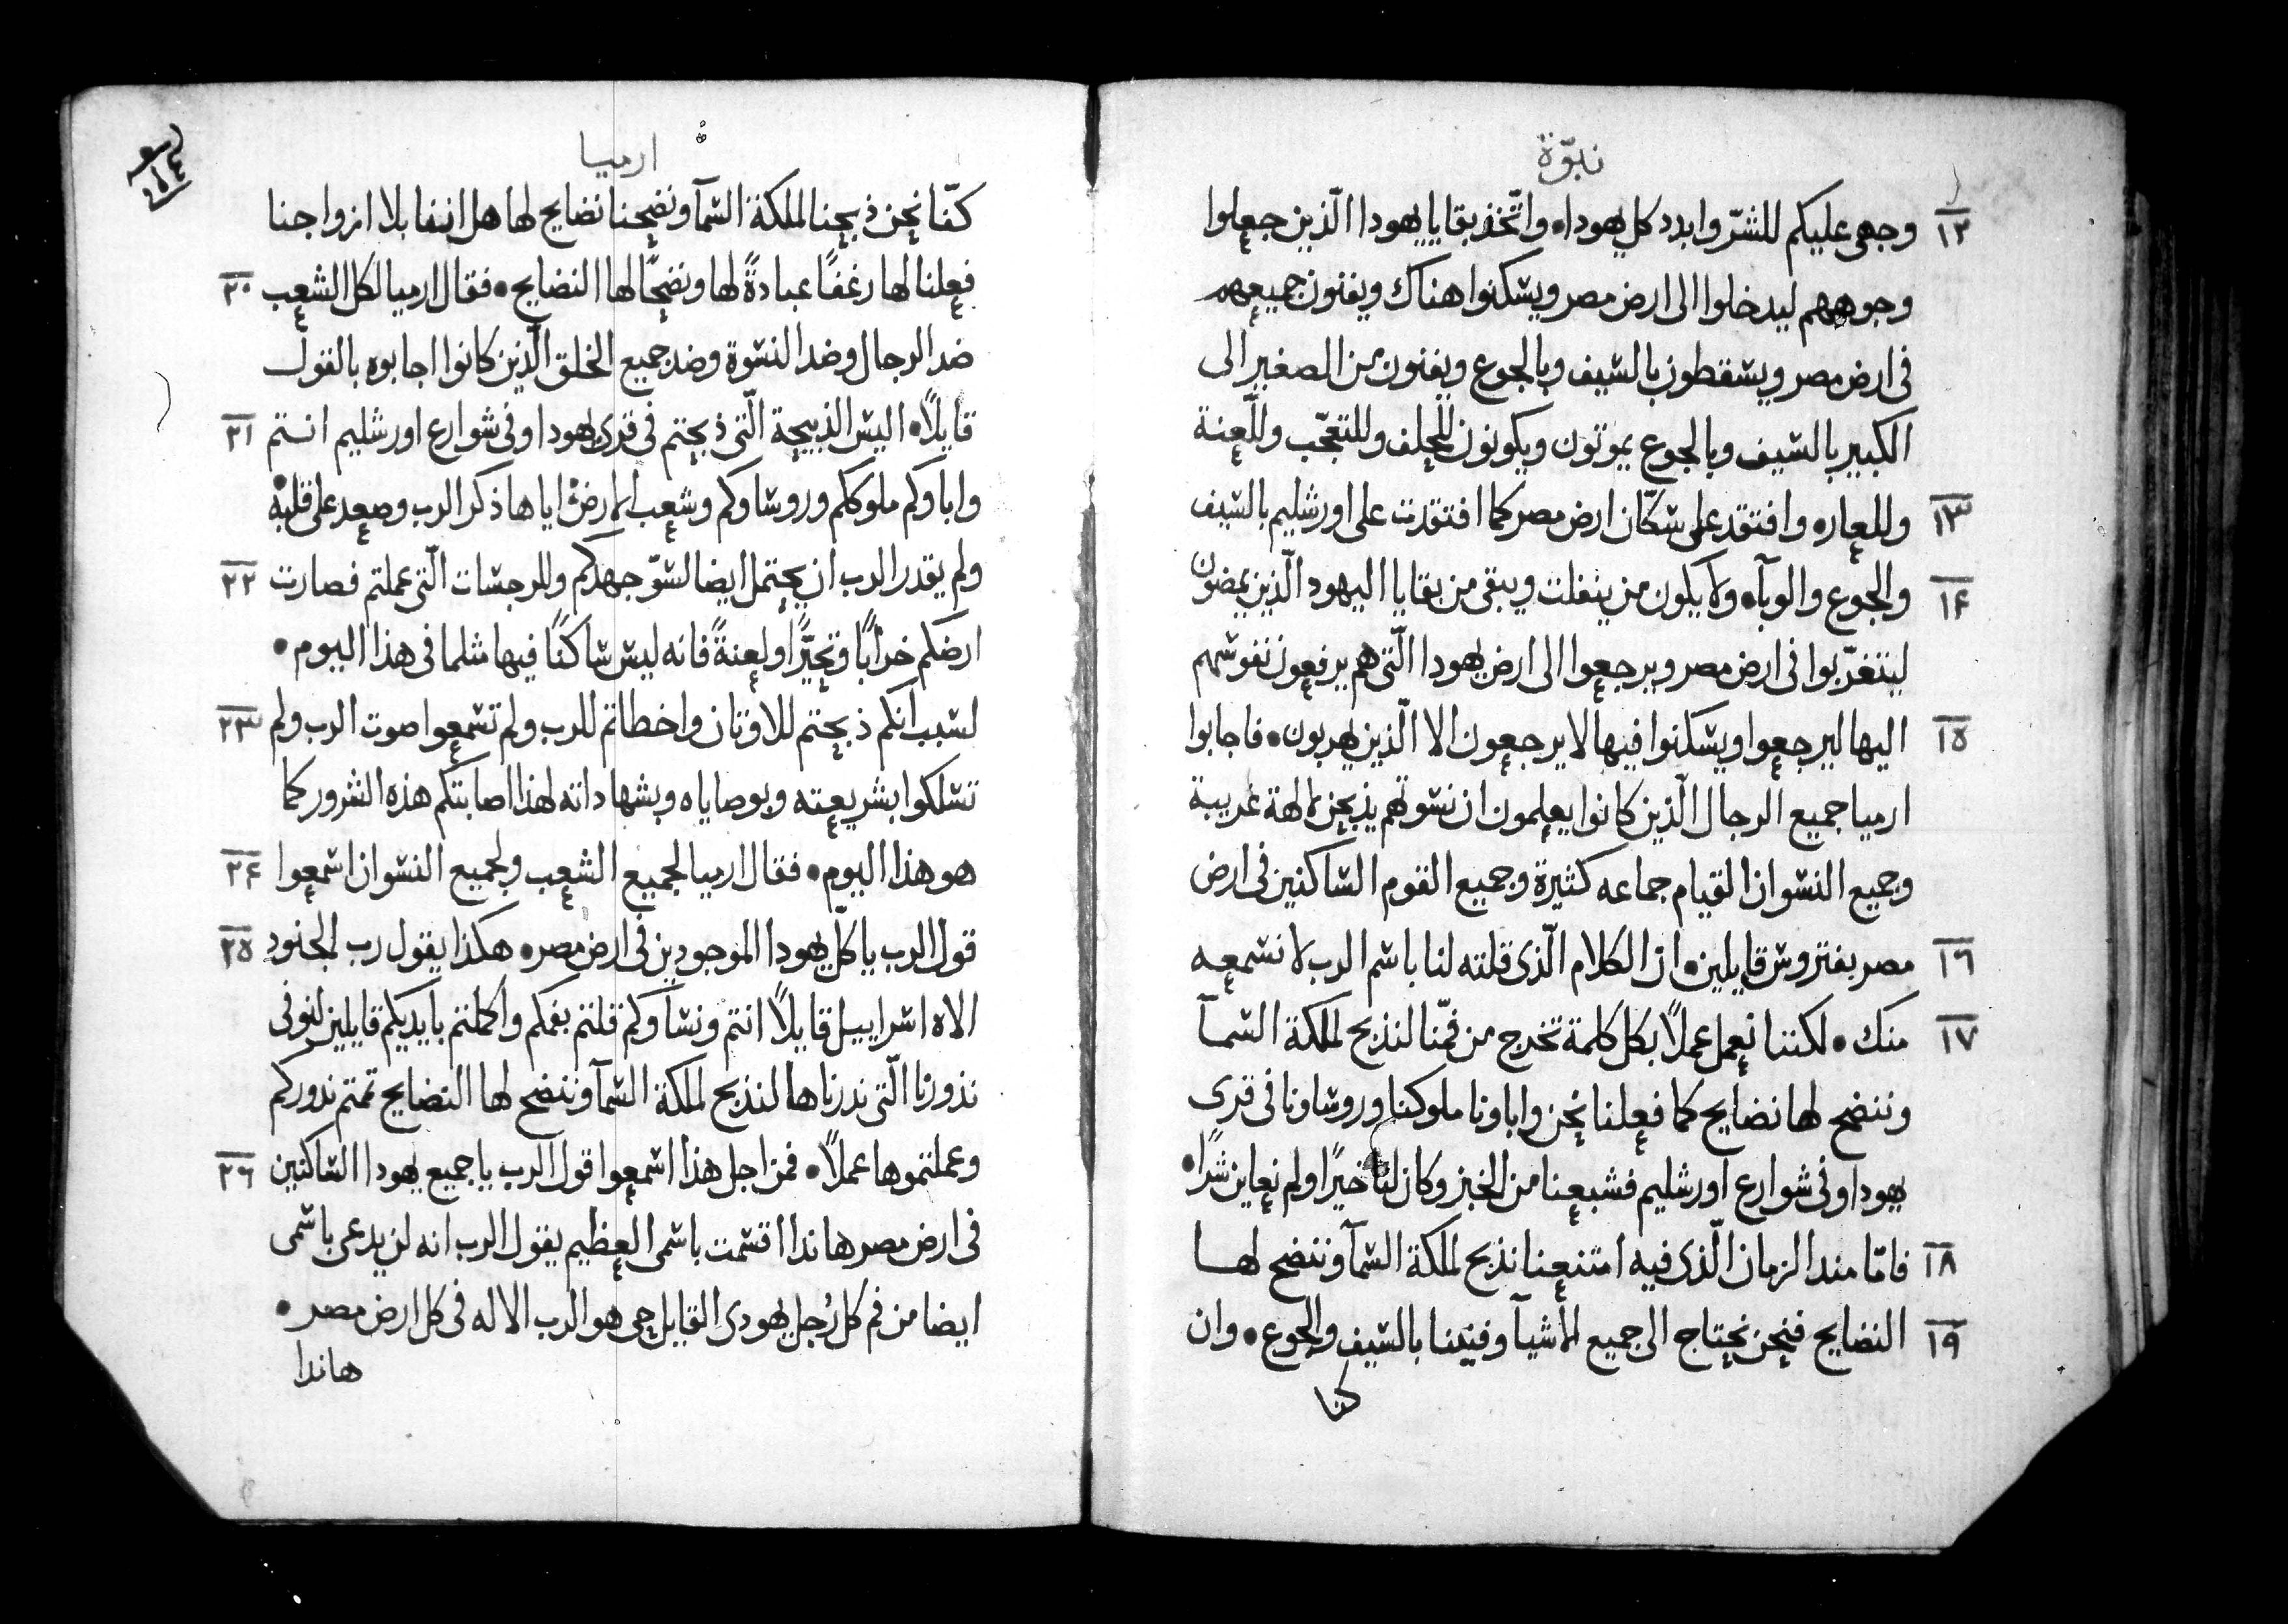 نبوّة
١٢ وجهى عليكم للشرّ وابدد كل يهودا• واتّخذ بقايا يهودا الّذين جعلوا
وجوههم ليدخلوا الى ارض مصر ويسكنوا هناك ويفنون جميعهم
فى ارض مصر ويسقطون بالسيف وبالجوع ويفنون من الصغير الى
الكبير بالسيف وبالجوع يموتون ويكونون للحلف وللتعجّب وللّعنة
١٣ وللعاره وافتقد على سكّان ارض مصر كما افتقدت على اورشليم بالسيف
١٤ والجوع والوبآ• ولا يكون من ينفلت ويبقى من بقايا اليهود الّذين يمضون
ليتغرّبوا فى ارض مصر ويرجعوا الى ارض يهودا الّتى هم يرفعون نفوسهم
١٥ اليها ليرجعوا ويسكنوا فيها لا يرجعون الا الّذين يهربون• فاجابوا
ارميا جميع الرجال الّذين كانوا يعلمون ان نسوتهم يذبحن لالهة غريبة
وجميع النسوان القيام جماعه كثيرة وجميع القوم الساكنين فى ارض
١٦ مصر بفتروس قايلين• ان الكلام الّذى قلته لنا باسم الرب لا نسمعه
١٧ منك• لكننا نعمل عملاً بكل كلمة تخرج من فمّنا لنذبح لملكة السمآ
وننضح لها نضايح كما فعلنا نحن واباونا ملوكنا وروساونا فى قرى
يهودا وفى شوارع اورشليم فشبعنا من الخبز وكان لنا خيرًا ولم نعاين شرًا•
١٨ فامّا مند الزمان الّذى فيه امتنعنا نذبح لملكة السمآ وننضح لها
١٩ النضايح فنحن نحتاج الى جميع الاشيآ وفنينا بالسيف والجوع• وان
كنا
ارميا
كنّا نحن ذبحنا لملكة السمآ ونضحنا نضايح لها هل اننا بلا ازواجنا
٢٠ فعلنا لها رغفًا عبادةً لها ونضحًا لها النضايح• فقال ارميا لكل الشعب
ضد الرجال وضد النسوة وضد جميع الخلق الّذين كانوا اجابوه بالقول
٢١ قايلاً• اليس الذبيحة الّتى ذبحتم فى قرى يهودا وفى شوارع اورشليم انتم
واباوكم ملوككم وروساوكم وشعب الارض اياها ذكر الرب وصعد على قلبه
٢٢ ولم يقدر الرب ان يحتمل ايضا لسوّ جهدكم وللرجسات الّتى عملتم فصارت
ارضكم خرابًا وتحيّرًا ولعنةً فانه ليس ساكنًا فيها مثلما فى هذا اليوم•
٢٣ لسبب انكم ذبحتم للاوثان واخطاتم للرب ولم تسمعوا صوت الرب ولم
تسلكوا بشريعته وبوصاياه وبشهاداته لهذا اصابتكم هذه الشرور كما
٢٤ هو هذا اليوم• فقال ارميا لجميع الشعب ولجميع النسوان اسمعوا
٢٥ قول الرب يا كلّ يهودا الموجودين فى ارض مصر• هكذا يقول رب الجنود
الاه اسراييل قايلاً انتم ونساوكم قلتم بفمكم واكملتم بايديكم قايلين لنوفى
نذورنا الّتى ندرناها لنذبح لملكة السمآ وننضح لها النضايح تممتم ندوركم
٢٦ وعملتموها عملاً• فمن اجل هذا اسمعوا قول الرب يا جميع يهودا الساكنين
فى ارض مصر هاندا اقسمت باسمى العظيم يقول الرب انه لن يدعى باسمى
ايضا من فم كل رُجل يهودى القايل حى هو الرب الاله فى كل ارض مصر•
هاندا